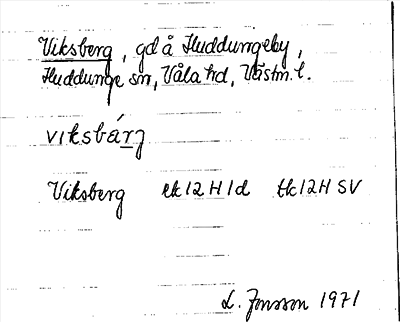 Viksberg, gd å Huddungeby,
Huddunge sn, Våla hd, Västm. l.
vıksbá<u>r</u>j
Viksberg ek 12 H 1d tk 12 H SV
L. Jonsson 1971